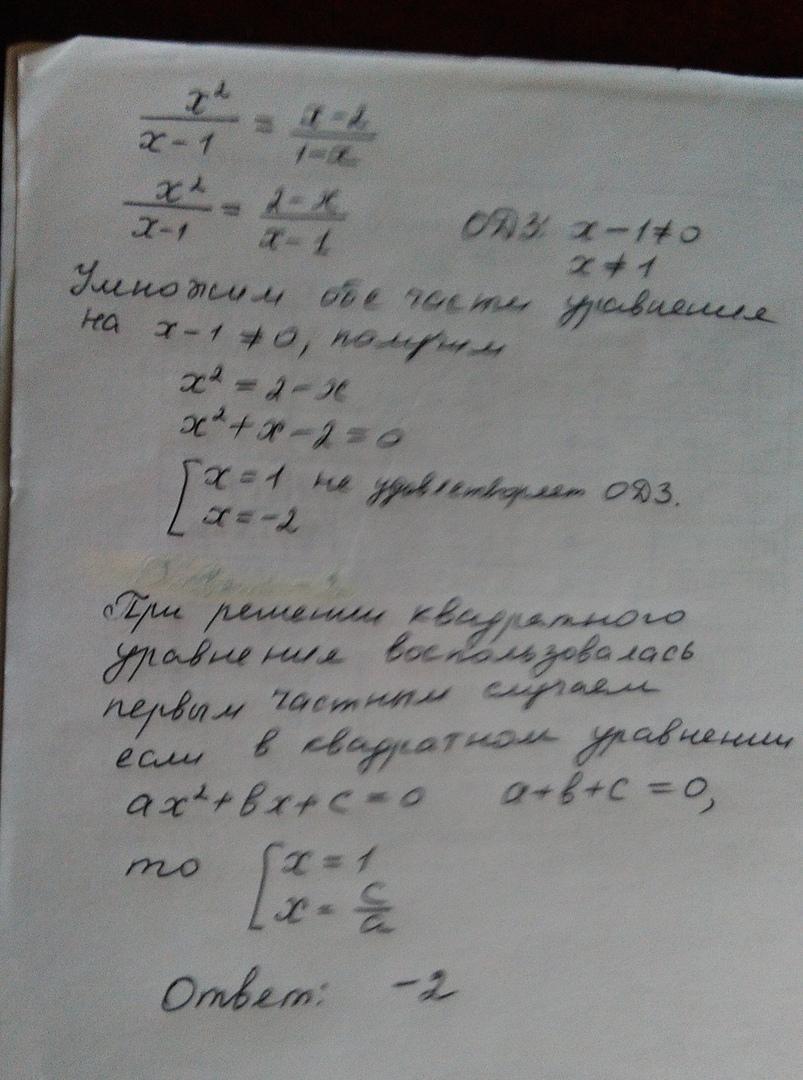 x²/(x-1) = (x-2)/(1-x)
x²/(x-1) = (2-x)/(x-1) ОДЗ: x-1≠0
x≠1
Умножим обе части уравнения
на x-1≠0, получим
x² = 2-x
x²+x-2=0
[ x=1 не удовлетворяет ОДЗ.
x=-2
При решении квадратного
уравнения воспользовалась
первым частным случаем
если в квадратном уравнении
ax²+bx+c=0 a+b+c=0,
то [ x=1
x=c/a
Ответ: -2